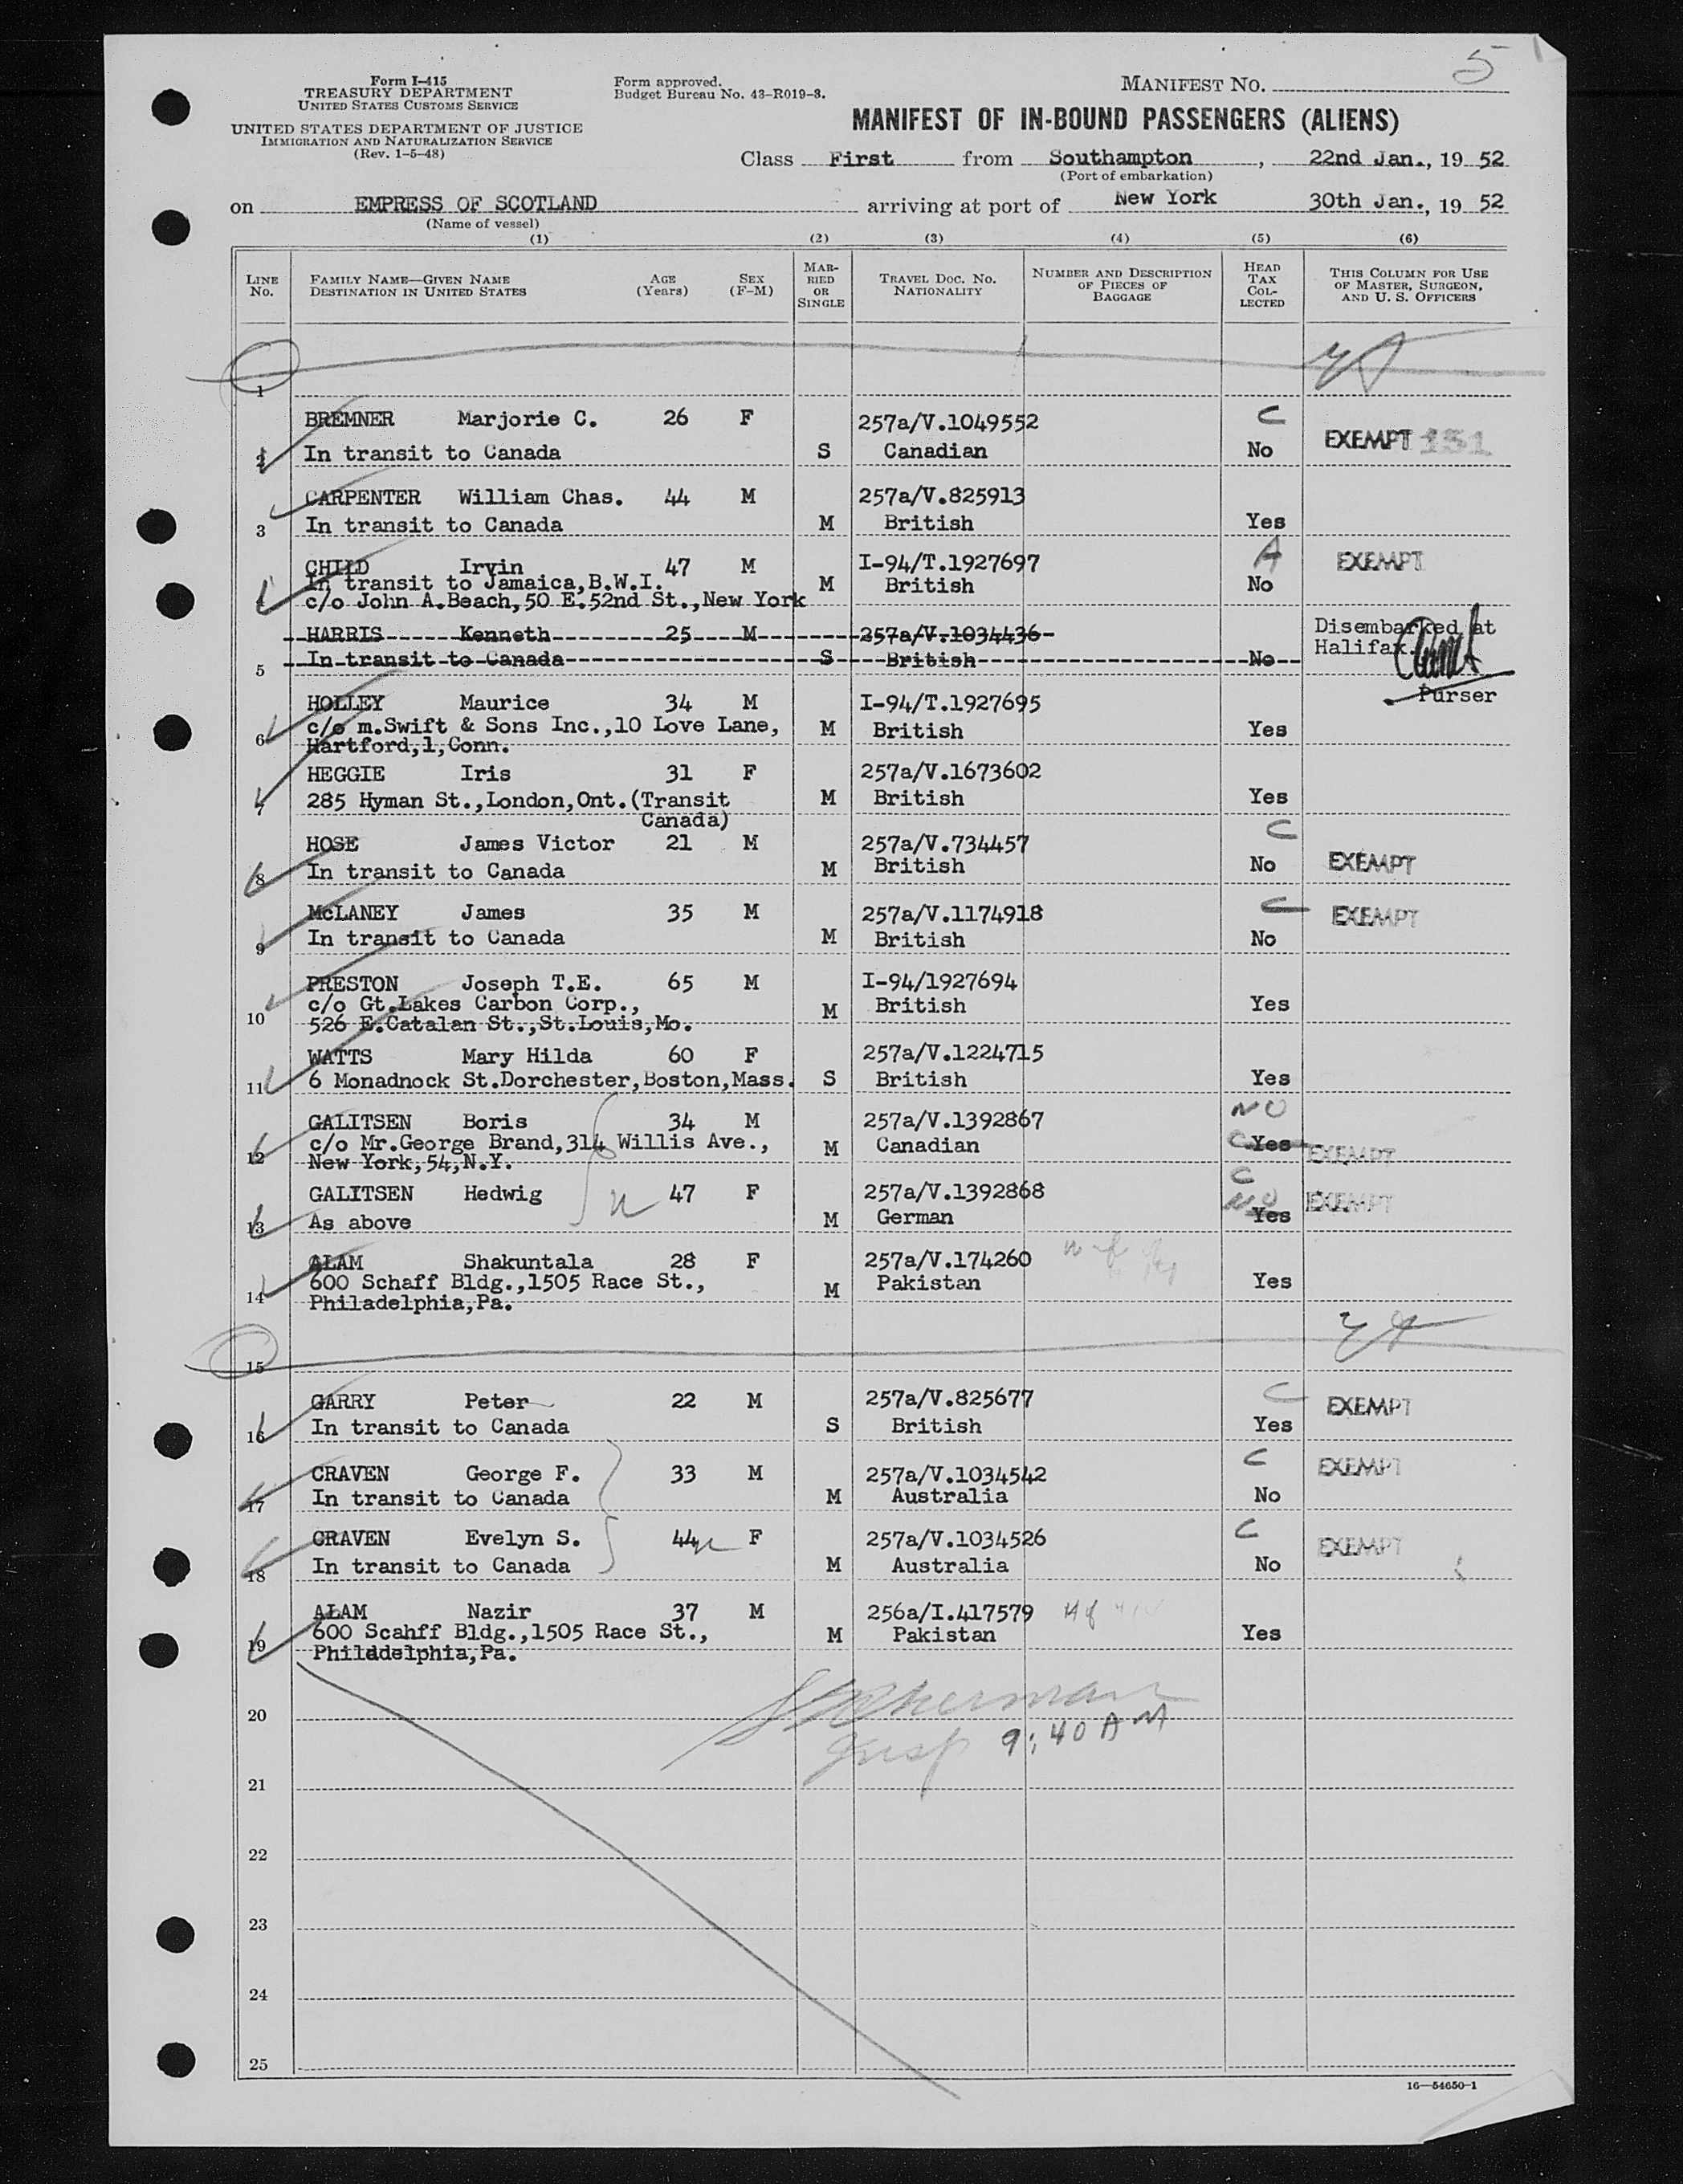 5
Form I-415
TREASURY DEPARTMENT
UNITED STATES CUSTOMS SERVICE
UNITED STATES DEPARTMENT OF JUSTICE
IMMIGRATION AND NATURALIZATION SERVICE
(Rev. 1-5-48)
Form approved.
Budget Bureau No. 43-R019-3.
MANIFEST NO.
MANIFEST OF IN-BOUND PASSENGERS (ALIENS)
Class First from Southampton, 22nd Jan., 19 52
(Port of embarkation)
on EMPRESS OF SCOTLAND arriving at port of New York 30th Jan., 19 52
(Name of vessel)
(1) (2) (3) (4) (5) (6)
LINE No.
FAMILY NAME—GIVEN NAME
DESTINATION IN UNITED STATES
AGE (Years)
SEX (F-M)
MARRIED OR SINGLE
TRAVEL DOC. NO.
NATIONALITY
NUMBER AND DESCRIPTION OF PIECES OF BAGGAGE
HEAD TAX COLLECTED
THIS COLUMN FOR USE OF MASTER, SURGEON, AND U. S. OFFICERS
1
BREMNER Marjorie C. 26 F 257a/V.1049552 C
2 In transit to Canada S Canadian No EXEMPT 151
CARPENTER William Chas. 44 M 257a/V.825913
3 In transit to Canada M British Yes
CHILD Irvin 47 M I-94/T.1927697 A EXEMPT
In transit to Jamaica,B.W.I. M British No
4 c/o John A.Beach,50 E.52nd St.,New York
HARRIS Kenneth 25 M 257a/V.1034436 Disembarked at
5 In transit to Canada S British No Halifax.
Purser
HOLLEY Maurice 34 M I-94/T.1927695
6 c/o m.Swift & Sons Inc.,10 Love Lane, M British Yes
Hartford,1,Conn.
HEGGIE Iris 31 F 257a/V.1673602
7 285 Hyman St.,London,Ont.(Transit M British Yes
Canada)
HOSE James Victor 21 M 257a/V.734457 C
8 In transit to Canada M British No EXEMPT
McLANEY James 35 M 257a/V.1174918 C EXEMPT
9 In transit to Canada M British No
PRESTON Joseph T.E. 65 M I-94/1927694
c/o Gt.Lakes Carbon Corp., M British Yes
10 526 E.Catalan St.,St.Louis,Mo.
WATTS Mary Hilda 60 F 257a/V.1224715
11 6 Monadnock St.Dorchester,Boston,Mass. S British Yes
GALITSEN Boris 34 M 257a/V.1392867 NO
c/o Mr.George Brand,314 Willis Ave., M Canadian C Yes EXEMPT
12 New York,54,N.Y.
GALITSEN Hedwig 47 F 257a/V.1392868 C NO EXEMPT
13 As above M German Yes
ALAM Shakuntala 28 F 257a/V.174260
600 Schaff Bldg.,1505 Race St., M Pakistan Yes
14 Philadelphia,Pa.
15
GARRY Peter 22 M 257a/V.825677 C EXEMPT
16 In transit to Canada S British Yes
CRAVEN George F. 33 M 257a/V.1034542 C EXEMPT
17 In transit to Canada M Australia No
CRAVEN Evelyn S. 44 F 257a/V.1034526 C EXEMPT
18 In transit to Canada M Australia No
ALAM Nazir 37 M 256a/I.417579
19 600 Scahff Bldg.,1505 Race St., M Pakistan Yes
Philddelphia,Pa.
20
Insp 9:40 AM
21
22
23
24
25
16—54650-1